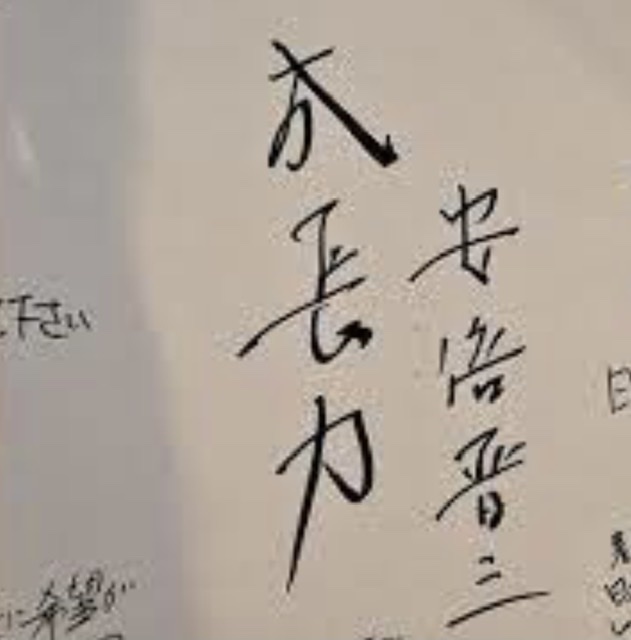 成長力
安倍晋三
下さい
に希望が